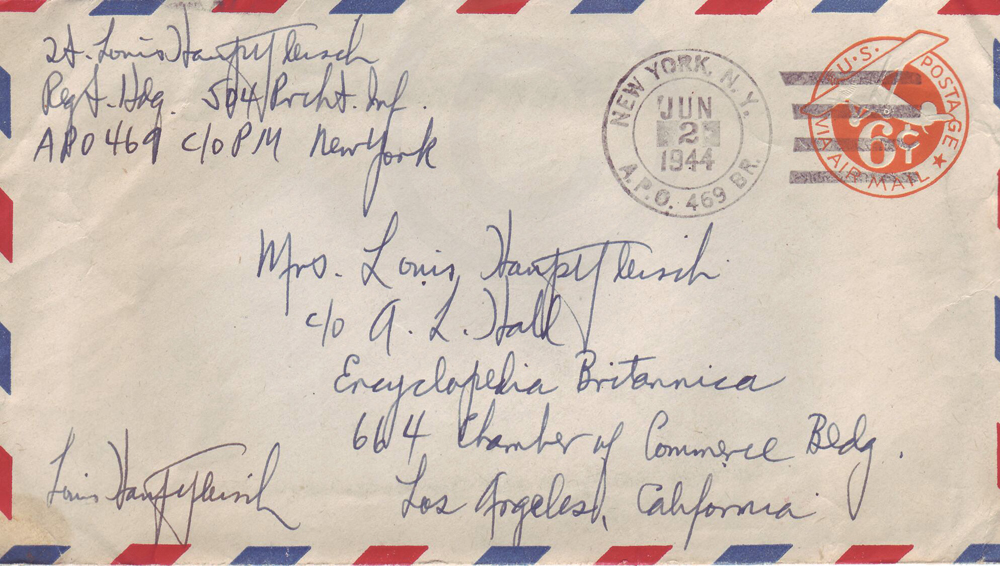 Lt. Louis Hauptfleisch
Regt. Hdq. 504 Prcht. Inf.
APO 469 c/o PM New York
NEW YORK, N.Y.
JUN
2
1944
A.P.O. 469 BR.
U.S. POSTAGE
6¢
VIA AIR MAIL
Mrs. Louis Hauptfleisch
c/o A. L. Hall
Encyclopedia Britannica
664 Chamber of Commerce Bldg.
Los Angeles, California
Louis Hauptfleisch